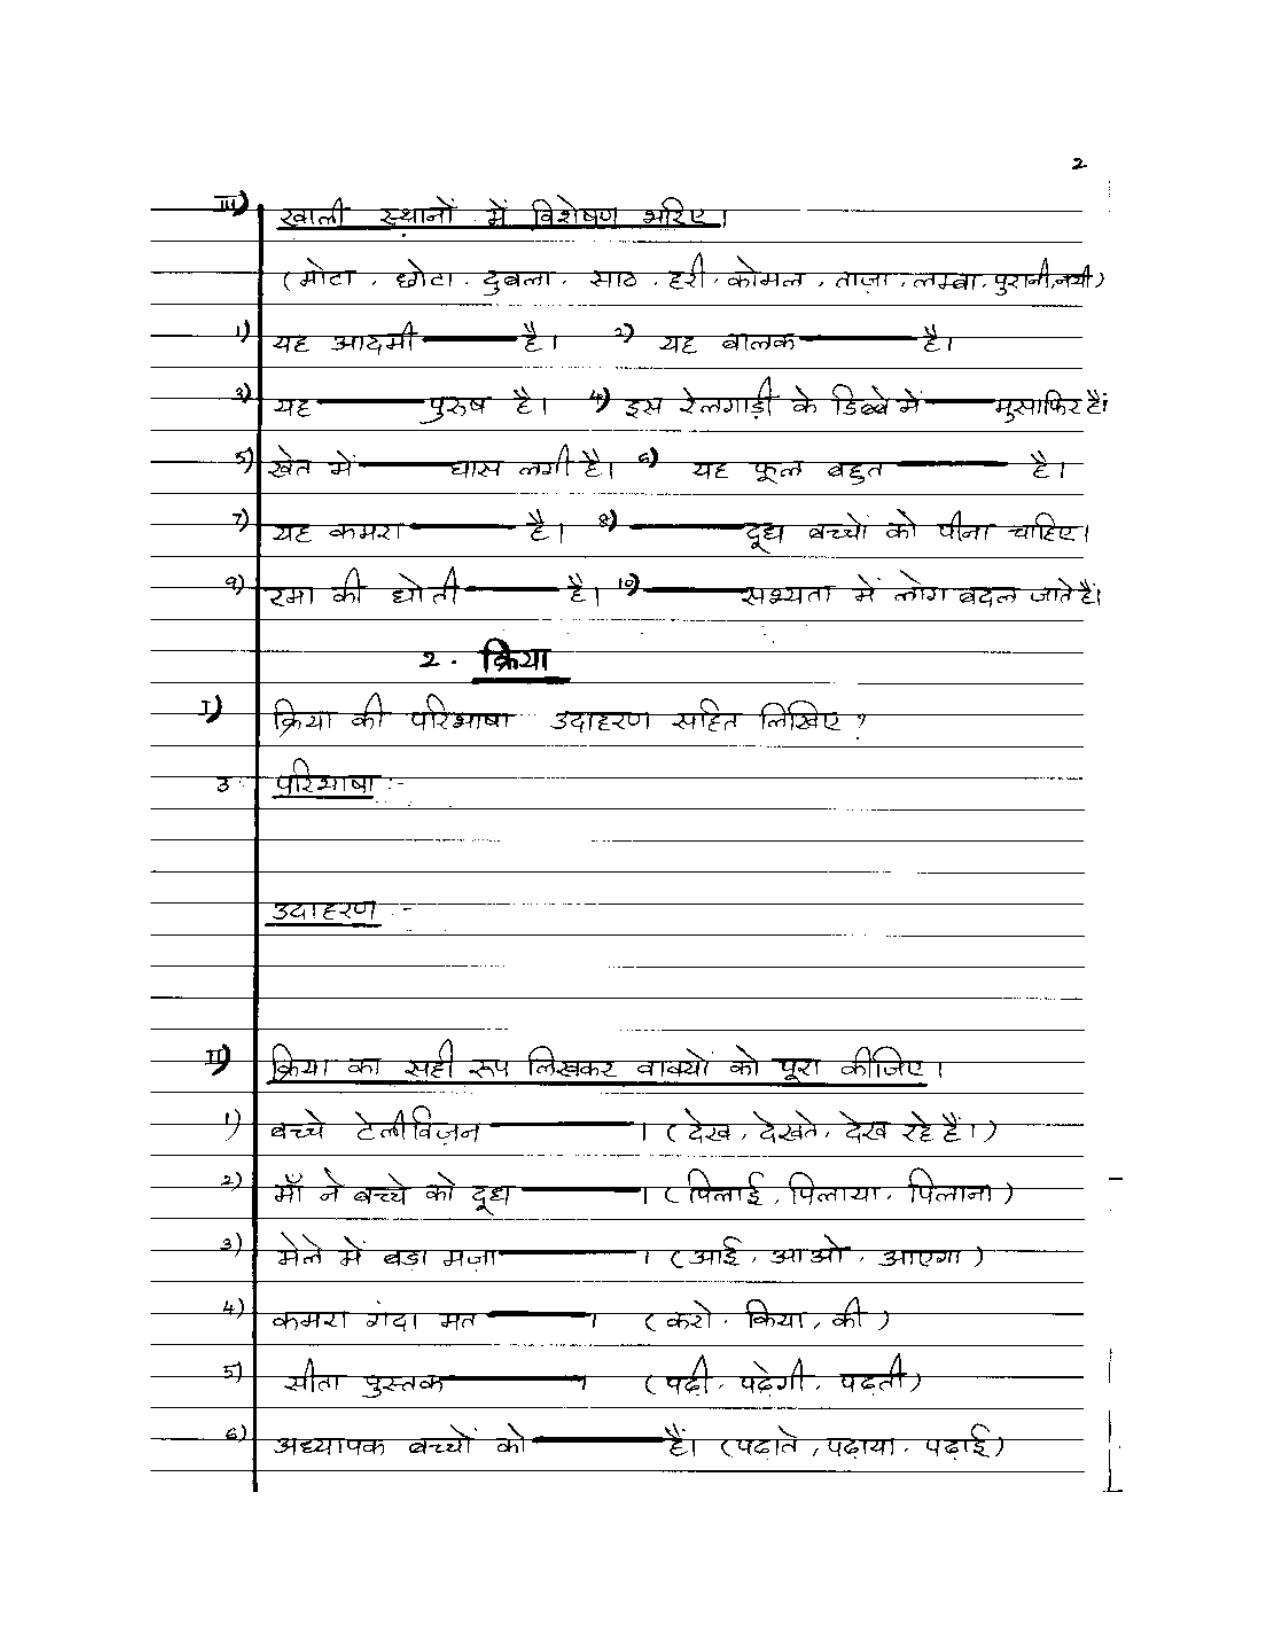 2
III) खाली स्थानों में विशेषण भरिए।
(मोटा, छोटा, दुबला, साठ, हरी, कोमल, ताज़ा, लम्बा, पुरानी, नयी)
1) यह आदमी ———— है। 2) यह बालक ———— है।
3) यह ———— पुरुष है। 4) इस रेलगाड़ी के डिब्बे में ———— मुसाफिर हैं।
5) खेत में ———— घास लगी है। 6) यह फूल बहुत ———— है।
7) यह कमरा ———— है। 8) ———— दूध बच्चों को पीना चाहिए।
9) रमा की धोती ———— है। 10) ———— सभ्यता में लोग बदल जाते हैं।
2. क्रिया
I) क्रिया की परिभाषा उदाहरण सहित लिखिए?
उ. परिभाषा :-
उदाहरण :-
II) क्रिया का सही रूप लिखकर वाक्यों को पूरा कीजिए।
1) बच्चे टेलीविज़न ————। (देख, देखते, देख रहे हैं।)
2) माँ ने बच्चे को दूध ————। (पिलाई, पिलाया, पिलाना)
3) मेले में बड़ा मज़ा ————। (आई, आओ, आएगा)
4) कमरा गंदा मत ————। (करो, किया, की)
5) सीता पुस्तक ————। (पढ़ी, पढ़ेगी, पढ़ती)
6) अध्यापक बच्चों को ———— हैं। (पढ़ाते, पढ़ाया, पढ़ाई)